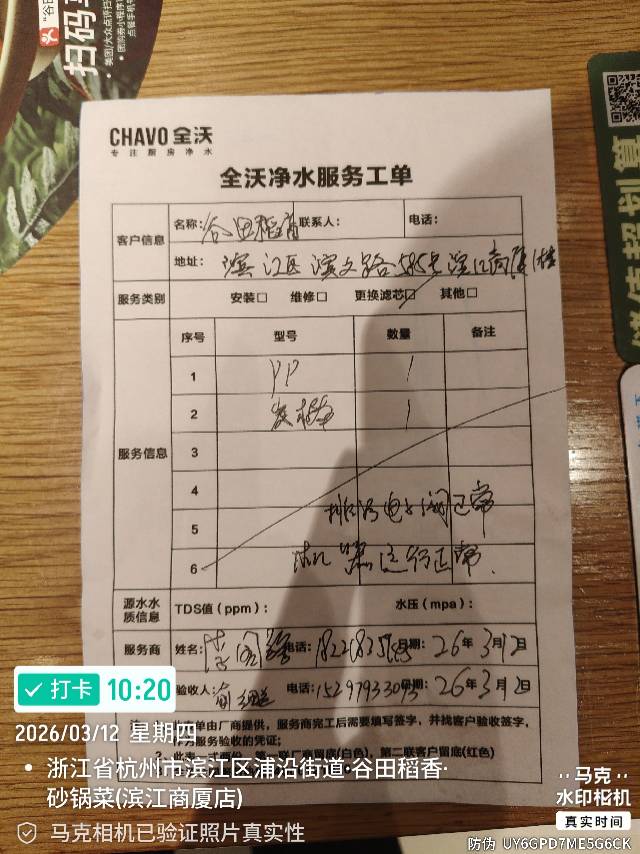 "谷田
扫码
美团/大众点评扫
团购券小程序
点餐手机号
CHAVO 全沃
专注厨房净水
全沃净水服务工单
客户信息 名称: 谷田稻香 联系人: 电话:
地址: 滨江区滨文路585号滨江商厦1楼
服务类别 安装□ 维修□ 更换滤芯□ 其他□
服务信息 序号 型号 数量 备注
1 PP 1
2 1
3
4
排污电磁阀正常
5
机器运行正常.
6
源水水质信息 TDS值(ppm): 水压(mpa):
服务商 姓名: 电话: 日期: 26年3月12日
验收人: 电话: 日期: 26年3月12日
单由厂商提供,服务商完工后需要填写签字,并找客户验收签字,
作为服务验收的凭证;
2、此表一式两份,第一联厂商留底(白色),第二联客户留底(红色)
打卡 10:20
2026/03/12 星期四
浙江省杭州市滨江区浦沿街道·谷田稻香·
砂锅菜(滨江商厦店)
马克相机已验证照片真实性
马克
水印相机
真实时间
防伪 UY6GPD7ME5G6CK